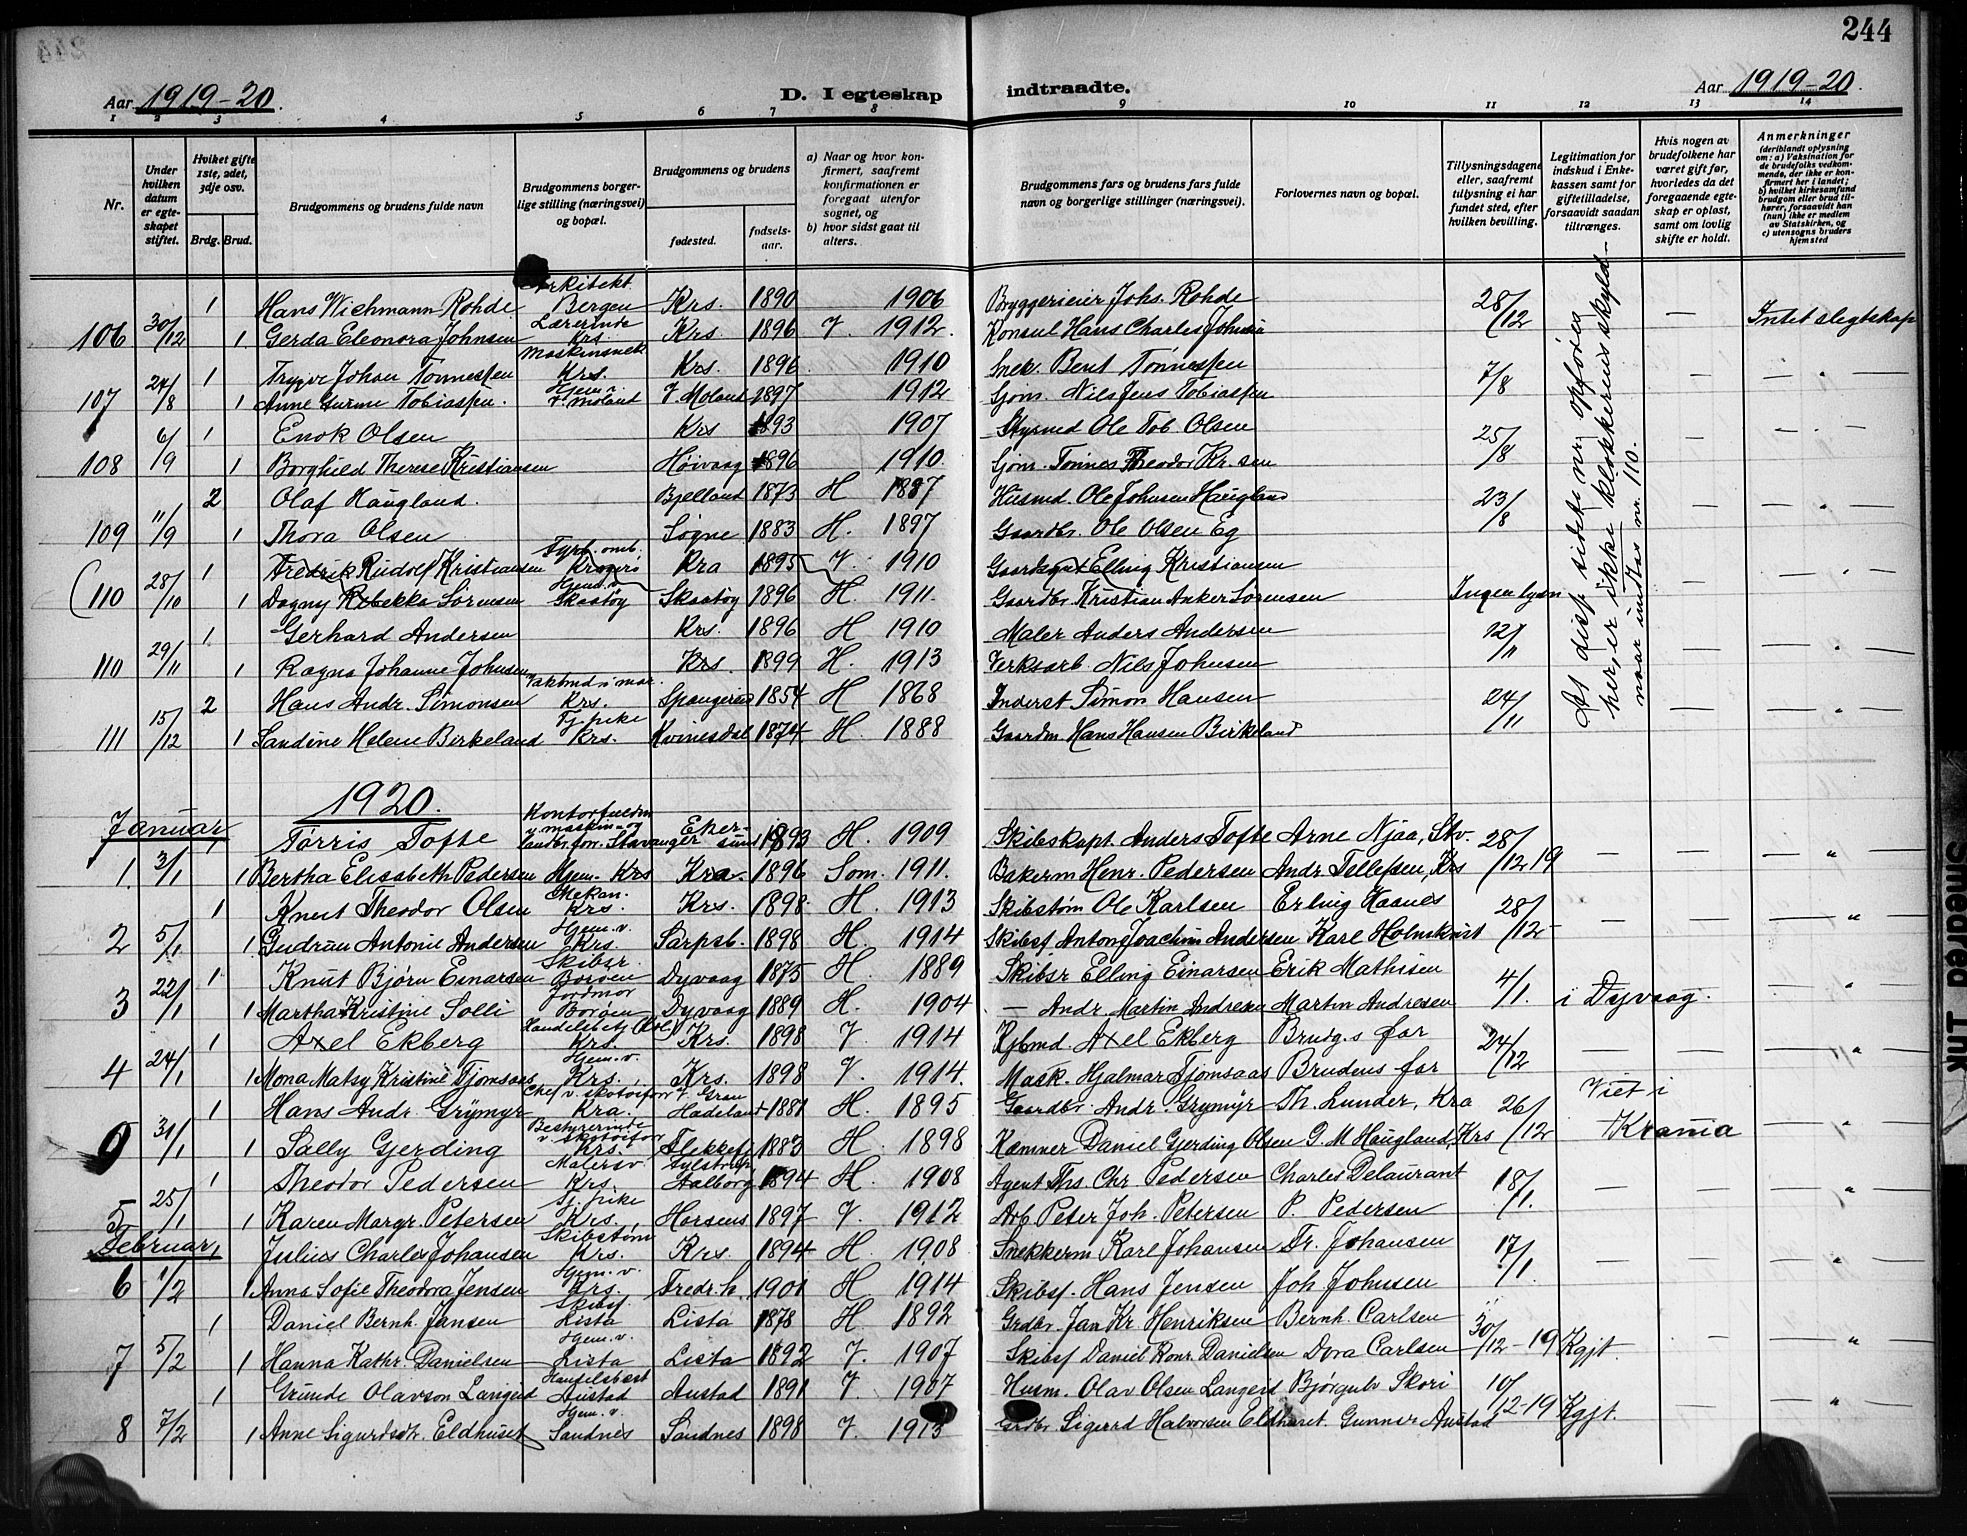 244
Aar 1919-20. D. I egteskap indtraadte. Aar 1919-20.
1 2 3 4 5 6 7 8 9 10 11 12 13 14
Nr.
Under hvilken datum er egteskapet stiftet.
Hviket gifte 1ste, 2det, 3dje osv.
Brdg. Brud.
Brudgommens og brudens fulde navn
Brudgommens borgerlige stilling (næringsvei) og bopæl.
Brudgommens og brudens
fødested. fødselsaar.
a) Naar og hvor konfirmert, saafremt konfirmationen er foregaat utenfor sognet, og
b) hvor sidst gaat til alters.
Brudgommens fars og brudens fars fulde navn og borgerlige stillinger (næringsvei).
Forlovernes navn og bopæl.
Tillysningsdagene eller, saafremt tillysning ei har fundet sted, efter hvilken bevilling.
Legitimation for indskud i Enkekassen samt for giftetilladelse, forsaavidt saadan tiltrænges.
Hvis nogen av brudefolkene har været gift før, hvorledes da det foregaaende egteskap er opløst, samt om lovlig skifte er holdt.
Anmerkninger
(deriblandt oplysning om: a) Vaksination for de brudefolks vedkommende, der ikke er konfirmert her i landet; b) hvilket kirkesamfund brudgom eller brud tilhører, forsaavidt han (hun) ikke er medlem av Statskirken, og c) utensogns bruders hjemsted
1 Hans Wichmann Rohde Arkitekt Bergen Krs. 1890 1906 Bryggerieier Johs. Rohde 28/12 — Intet slegtskap
106 30/12 1 Gerda Eleonora Johnsen Lærerinde Krs. Krs. 1896 V. 1912. Konsul Hans Charles Johnsen
1 Trygve Johan Tønnessen Maskinsnek Krs. Krs. 1896 1910 Snek. Bent Tønnessen 7/8 — — „ —
107 24/8 1 Anne Gurine Tobiassen. Hjem. v. V. Moland V. Moland 1897 1912 Sjøm. Nils Jens Tobiassen
1 Enok Olsen Krs 1893 1907 Styrmd Ole Tob. Olsen 25/8 — — „ —
108 6/9 1 Borghild Therese Kristiansen Høivaag 1896 1910. Sjøm. Tønnes Theodor Kr.sen
2 Olaf Haugland. Bjelland 1873 H 1887 Husmd. Ole Johnsen Haugland 23/8 — — „ —
109 11/9 1 Thora Olsen Søgne 1883 H. 1897 Gaardbr. Ole Olsen Eg
1 Fredrik Rudolf Kristiansen Kragerø Kra 1895 V. 1910 Elling Kristiansen — — „ —
(110 28/10 1 Dagny Rebekka Sørensen Hjem. v. Skaatøy Skaatøy 1896 H. 1911. Gaardbr. Kristian Anker Sørensen Ingen lysn
1 Gerhard Andersen Krs. 1896 H 1910 Maler Anders Andersen 12/11 — — „ —
110 29/11 1 Ragna Johanne Johnsen Krs. 1899 H. 1913 Verksarb. Nils Johnsen
2 Hans Andr. Simonsen Krs. Spangereid 1854 H 1868 Inderst Simon Hansen 24/11 — — „ —
111 15/12 1 Sandine Helene Birkeland Tj. pike Krs. Kvinesdal 1874 H. 1888 Gaardm Hans Hansen Birkeland
At disse sidste nr. opføres her, er ikke klokkerens skyld — naar undtas nr. 110.
1920.
Januar
1 Tørris Tofte Kontorfuldm v. maskin- og landbr. forr. Stavanger Ekersund 1893 H. 1909 Skibskapt. Anders Tofte Arne Njaa, Stv. 28/12 19 — — „ —
1. 3/1 1 Bertha Elisabeth Pedersen Hjem. Krs Kra. 1896 Som. 1911. Bakerm Henr. Pedersen Andr Tellefsen, Krs
1 Knut Theodor Olsen Mekan. Krs. Krs. 1898 H. 1913 Skibstøm Ole Karlsen Erling Kaanes 28/12 — — — „
2 5/1 1 Gudrun Antonie Andersen Hjem. v. Krs. Sarpsb. 1898 H. 1914 Skibsf Anton Joachim Andersen Karl Holmkvist
1 Knut Bjørn Einarsen Skibsr. Borøen Dyvaag 1875 H. 1889 Skibsr Elling Einarsen Erik Mathisen 4/1. i Dyvaag. — „ —
3 22/1 1 Martha Kristine Solli Jordmor Borøen Dyvaag 1889 H. 1904 — Andr. Martin Andresen Martin Andresen
1 Axel Ekberg Krs. Krs. 1898 V. 1914 Kjbmd. Axel Ekberg Brudg.s far 24/12 — — — „
4 24/1 1 Mona Matsy Kristine Tjomsaas Hjem. v. Krs. Krs. 1898 V. 1914. Mask. Hjalmar Tjomsaas Brudens far
1 Hans Andr. Grymyr Chef v. skotøiforr. Kra. V. Gran Hadeland 1881 H. 1895 Gaardbr. Andr. Grymyr Th. Lunder, Kra 26/12 Viet i Krania — „ —
0 31/1 1 Sally Gjerding Bestyrerinde v. skotøiforr Krs. Flekkefj 1883 H 1898 Kæmner Daniel Gjerding Olsen G. M Haugland, Krs
1 Theodor Pedersen Malersv. Krs. Aalborg 1894 H. 1908 Agent Ths Chr Pedersen Charles Delaurant 18/1. — — — „ —
5 25/1 1 Karen Margr. Petersen Tj. pike Krs. Horsens 1897 V. 1912 Arb Peter Joh. Petersen P. Pedersen
Februar,
Julius Charles Johansen Skibstøm. Krs. Krs. 1894 H. 1908 Snekkerm Karl Johansen Fr. Johansen 17/1. — — — „ —
6 1/2 1 Anna Sofie Theodora Jensen Hjem. v. Krs. Fredr.h. 1901 H. 1914 Skibsf. Hans Jensen Joh Johnsen
1 Daniel Bernh. Jansen Skibsf. Lista Lista 1878 H 1892 Grdbr. Jan Kr. Henriksen Bernh. Carlsen 30/12-19 Kgjt. — „ —
7 5/2 1 Hanna Kathr. Danielsen Hjem. v. Lista Lista 1892 V. 1907 Skibsf Daniel Konr. Danielsen Dora Carlsen
1 Grunde Olavson Langeid Handelsbest Austad Austad 1891 V 1907 Husm. Olav Olsen Langeid Bjørgulv Skori 10/12-19 Kgjt. — „ —
8 7/2 1 Anne Sigurdsdtr. Eldhuset Hjem. v. Sandnes Sandnes 1898 V. 1913 Grdbr Sigurd Halvorsen Eldhuset. Gunnar Austad
Smeared Ink